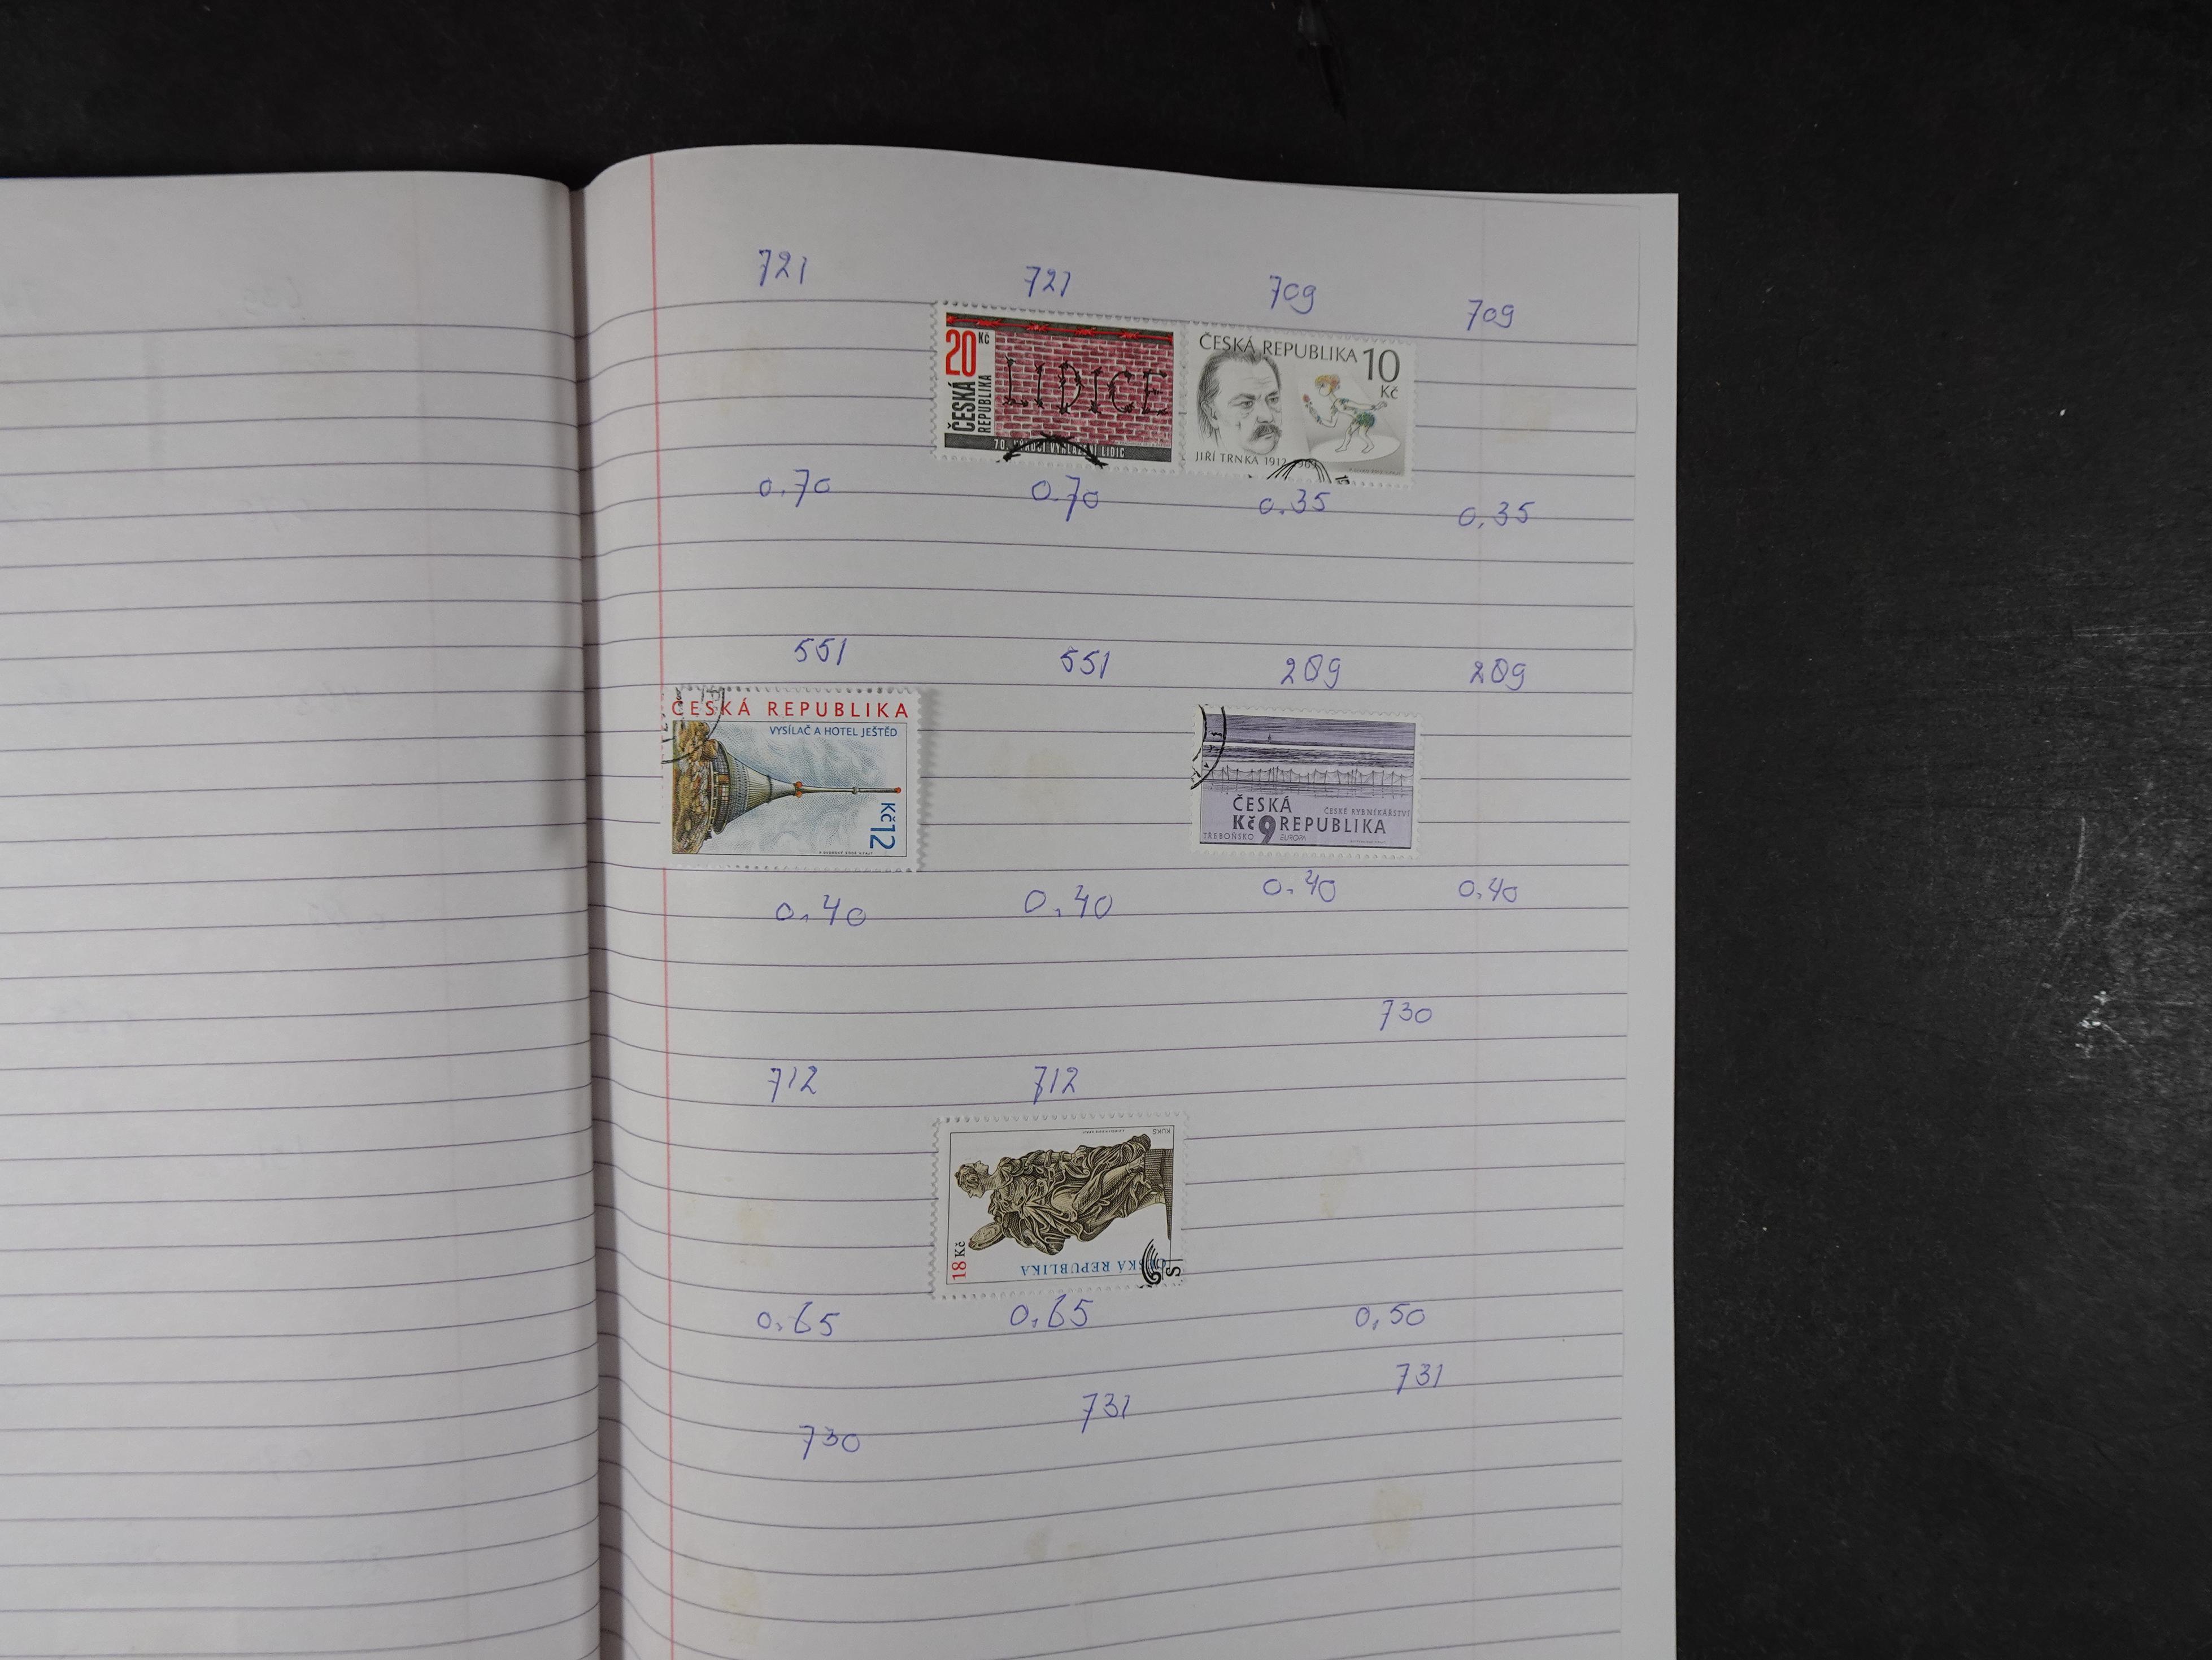 721 721 709 709
20 Kč
ČESKÁ REPUBLIKA
LIDICE
70. VÝROČÍ VYHLAZENÍ LIDIC
ČESKÁ REPUBLIKA 10 Kč
JIŘÍ TRNKA 1912
0.70 0.70 0.35 0,35
551 551 209 209
ČESKÁ REPUBLIKA
VYSÍLAČ A HOTEL JEŠTĚD
Kč 12
ČESKÁ
ČESKÉ RYBNÍKÁŘSTVÍ
Kč 9 REPUBLIKA
TŘEBOŇSKO EUROPA
0.40 0.40 0.40 0,40
730
712 712
KUKS
18 Kč
ČESKÁ REPUBLIKA
0.65 0.65 0,50
731
731
730